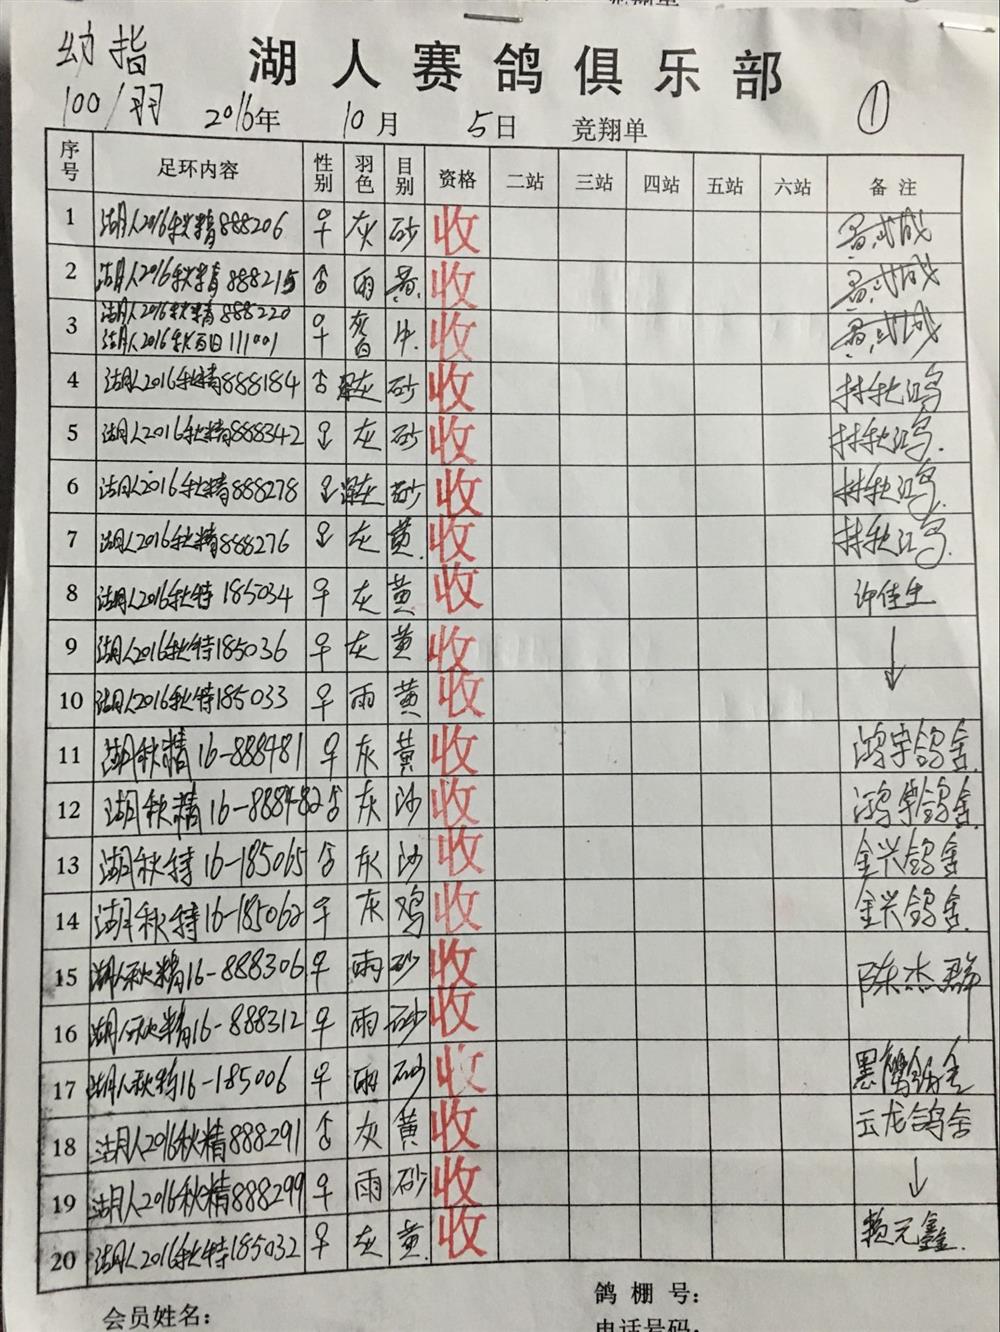 幼指
湖人赛鸽俱乐部
100/羽
2016年 10月 5日 竞翔单 ①
序号 足环内容 性别 羽色 目别 资格 二站 三站 四站 五站 六站 备注
1 湖人2016秋精888206 ♀ 灰 砂 收
2 湖人2016秋精888215 ♂ 雨 黄 收
3 湖人2016秋精888220 ♀ 牛 收
湖人2016秋百日111001
4 湖人2016秋精888184 ♂ 灰 砂 收 林秋鸿
5 湖人2016秋精888342 灰 砂 收 林秋鸿
6 湖人2016秋精888278 灰 砂 收 林秋鸿
7 湖人2016秋精888276 灰 黄 收 林秋鸿
8 湖人2016秋特185034 ♀ 灰 黄 收 许佳生
9 湖人2016秋特185036 ♀ 灰 黄 收 ↓
10 湖人2016秋特185033 ♀ 雨 黄 收
11 湖秋精16-888481 ♀ 灰 黄 收 鸿宇鸽舍
12 湖秋精16-888482 ♂ 灰 沙 收 鸿宇鸽舍
13 湖秋特16-185065 ♂ 灰 沙 收 金兴鸽舍
14 湖秋特16-185062 ♀ 灰 鸡 收 金兴鸽舍
15 湖人秋精16-888306 ♀ 雨 砂 收 陈杰群
16 湖人秋精16-888312 ♀ 雨 砂 收
17 湖人秋特16-185006 ♀ 雨 砂 收 鸽舍
18 湖人2016秋精888291 ♂ 灰 黄 收 云龙鸽舍
19 湖人2016秋精888299 ♀ 雨 砂 收 ↓
20 湖人2016秋特185032 ♀ 灰 黄 收 赖元鑫
会员姓名： 鸽棚号：
电话号码：